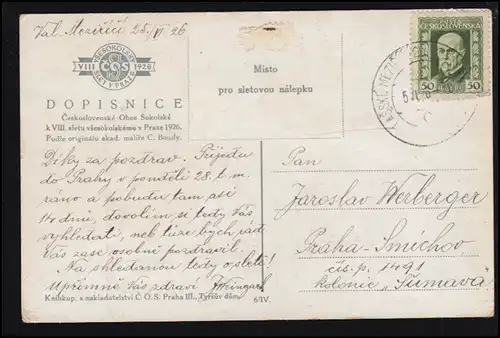 Val. Meziříčí 25./VI 26
VŠESOKOLSKÝ
VIII 1926
ČOS
SLET V PRAZE
DOPISNICE
Československé Obce Sokolské
k VIII. sletu všesokolskému v Praze 1926.
Podle originálu akad. malíře C. Boudy.
Místo
pro sletovou nálepku
ČESKOSLOVENSKÁ
50 50
Díky za pozdrav. Přijedu
do Prahy v pondělí 28. t. m.
ráno a pobudu tam asi
14 dní, dovolím si tedy Vás
vyhledati, neb túze bych rád
Vás zase osobně pozdravil.
Na shledanou tedy o sletě!
Upřímně Vás zdraví
Knihkup. a nakladatelství Č. O. S. Praha III., Tyršův dům.
6/IV.
Pan
Jaroslav Werberger
Praha-Smíchov
čís. p. 1491
kolonie „Šumava“